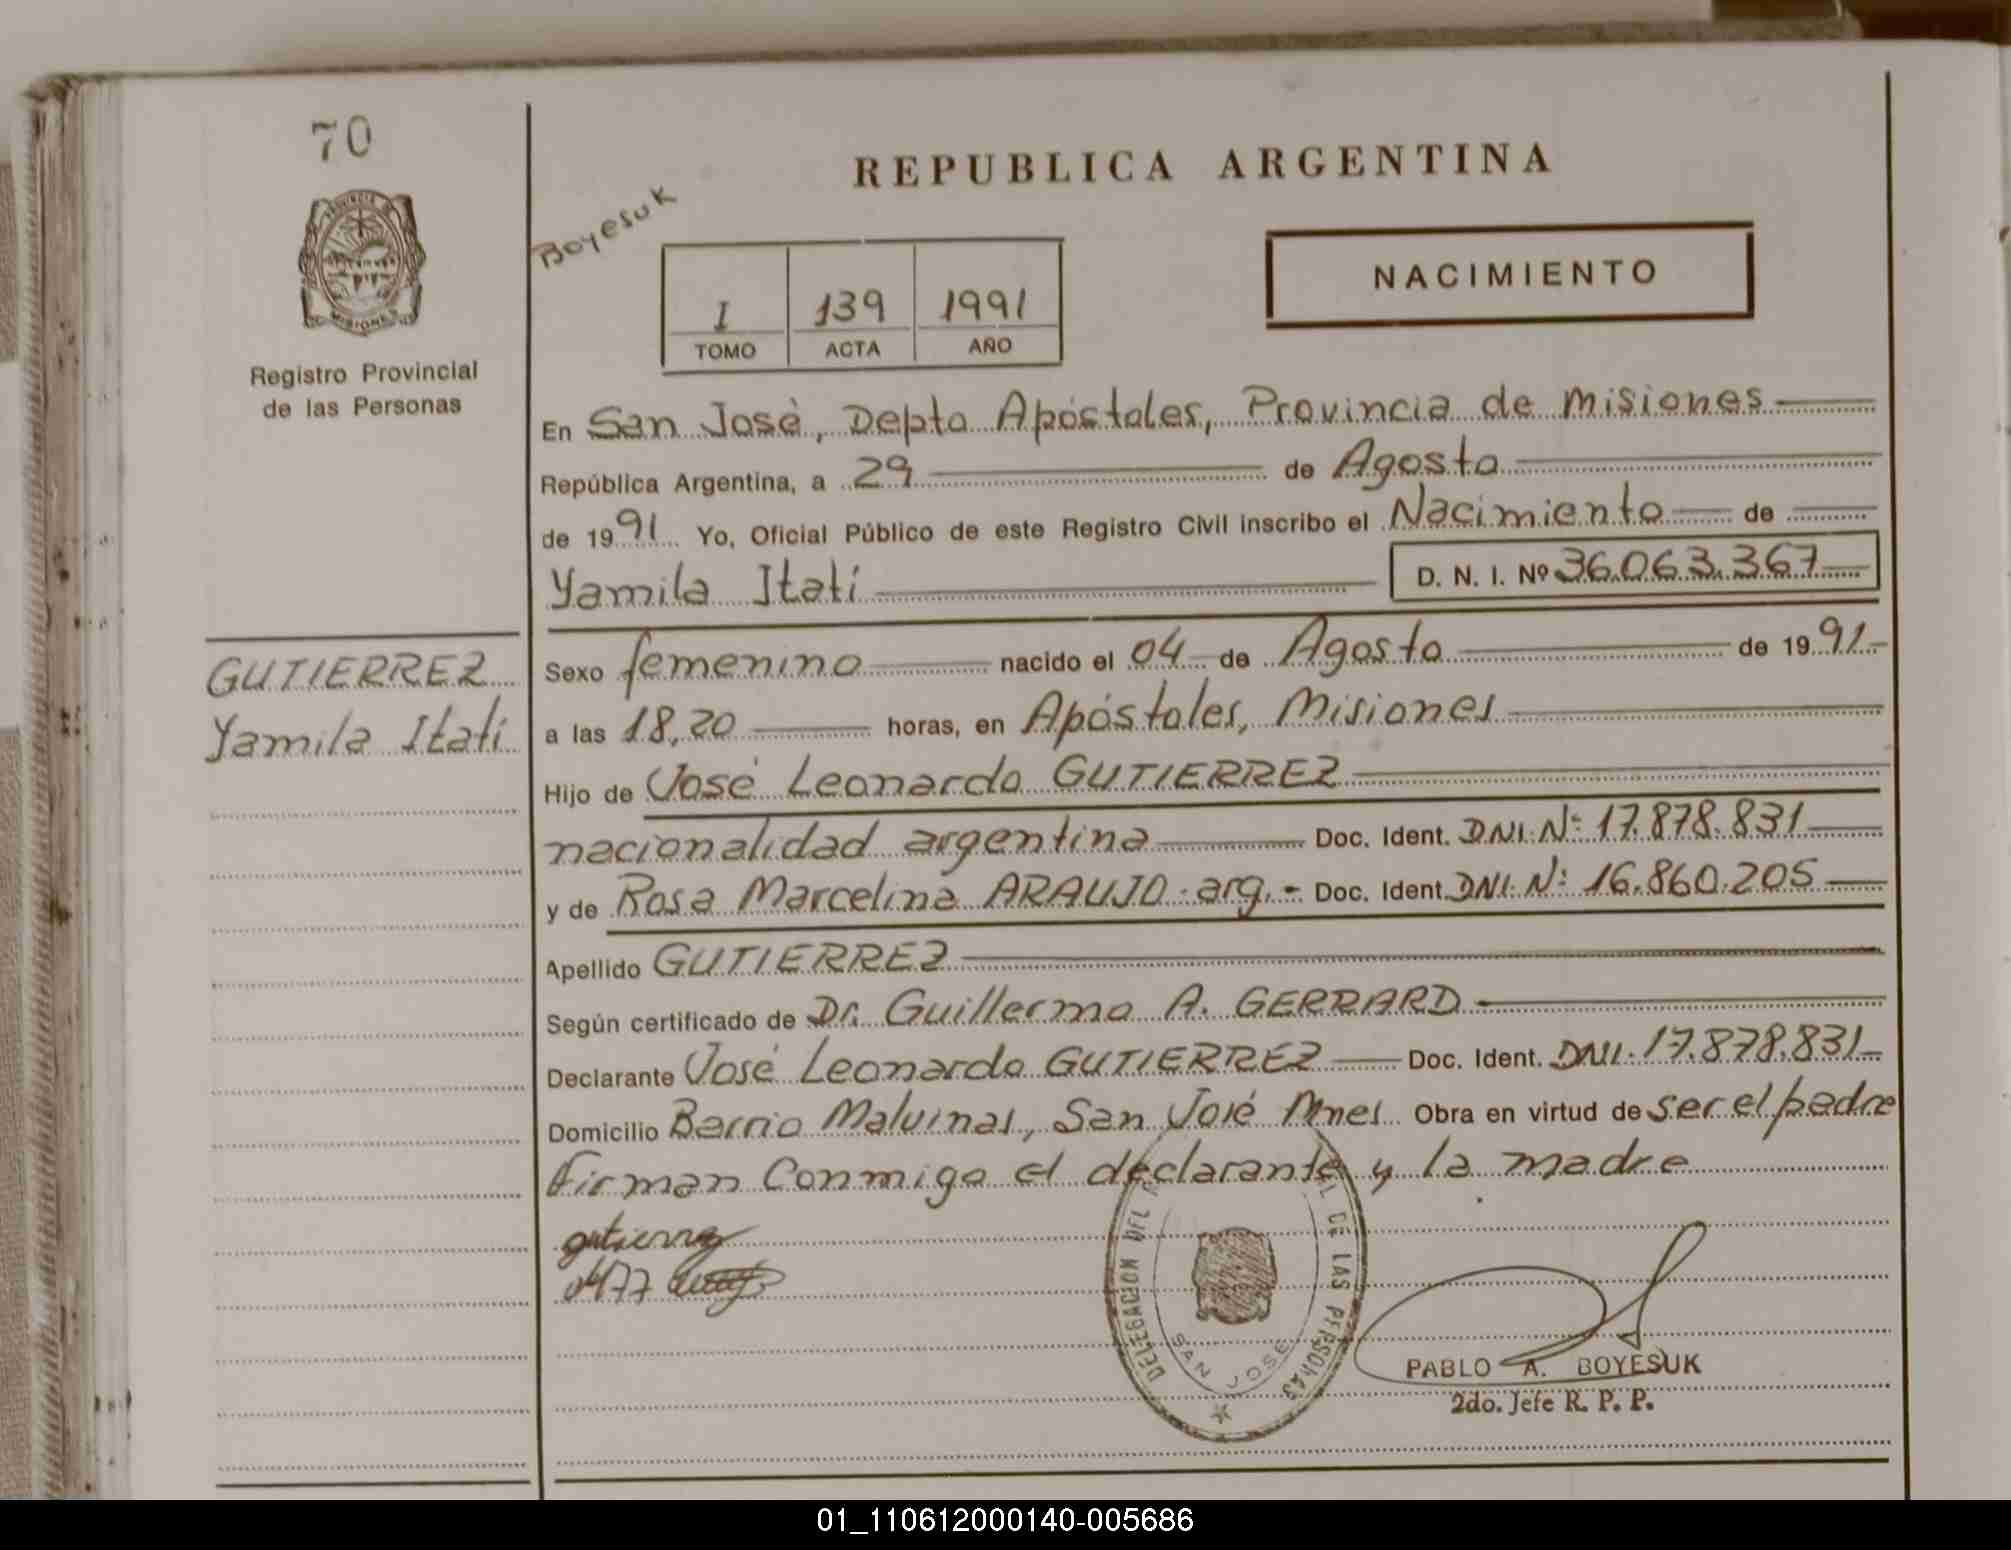 70
REPUBLICA ARGENTINA
Boyesuk
PROVINCIA DE
MISIONES
Registro Provincial
de las Personas
I 139 1991
TOMO ACTA AÑO
NACIMIENTO
En San José, Depto Apóstoles, Provincia de Misiones
República Argentina, a 29 de Agosto
de 1991 Yo, Oficial Público de este Registro Civil inscribo el Nacimiento de
Yamila Itatí D. N. I. Nº 36.063.367
GUTIERREZ
Yamila Itatí
Sexo femenino nacido el 04 de Agosto de 1991
a las 18,20 horas, en Apóstoles, Misiones
Hijo de José Leonardo GUTIERREZ
nacionalidad argentina Doc. Ident. DNI. Nº 17.878.831
y de Rosa Marcelina ARAUJO - arg. - Doc. Ident. DNI. Nº 16.860.205
Apellido GUTIERREZ
Según certificado de Dr. Guillermo A. GERRARD
Declarante José Leonardo GUTIERREZ Doc. Ident. DNI. 17.878.831
Domicilio Barrio Malvinas, San José Mnes Obra en virtud de ser el padre
Firman Conmigo el declarante y la madre
gutierrez
DELEGACION DEL DE LAS PERSONAS
SAN JOSE
PABLO A. BOYESUK
2do. Jefe R. P. P.
01_110612000140-005686